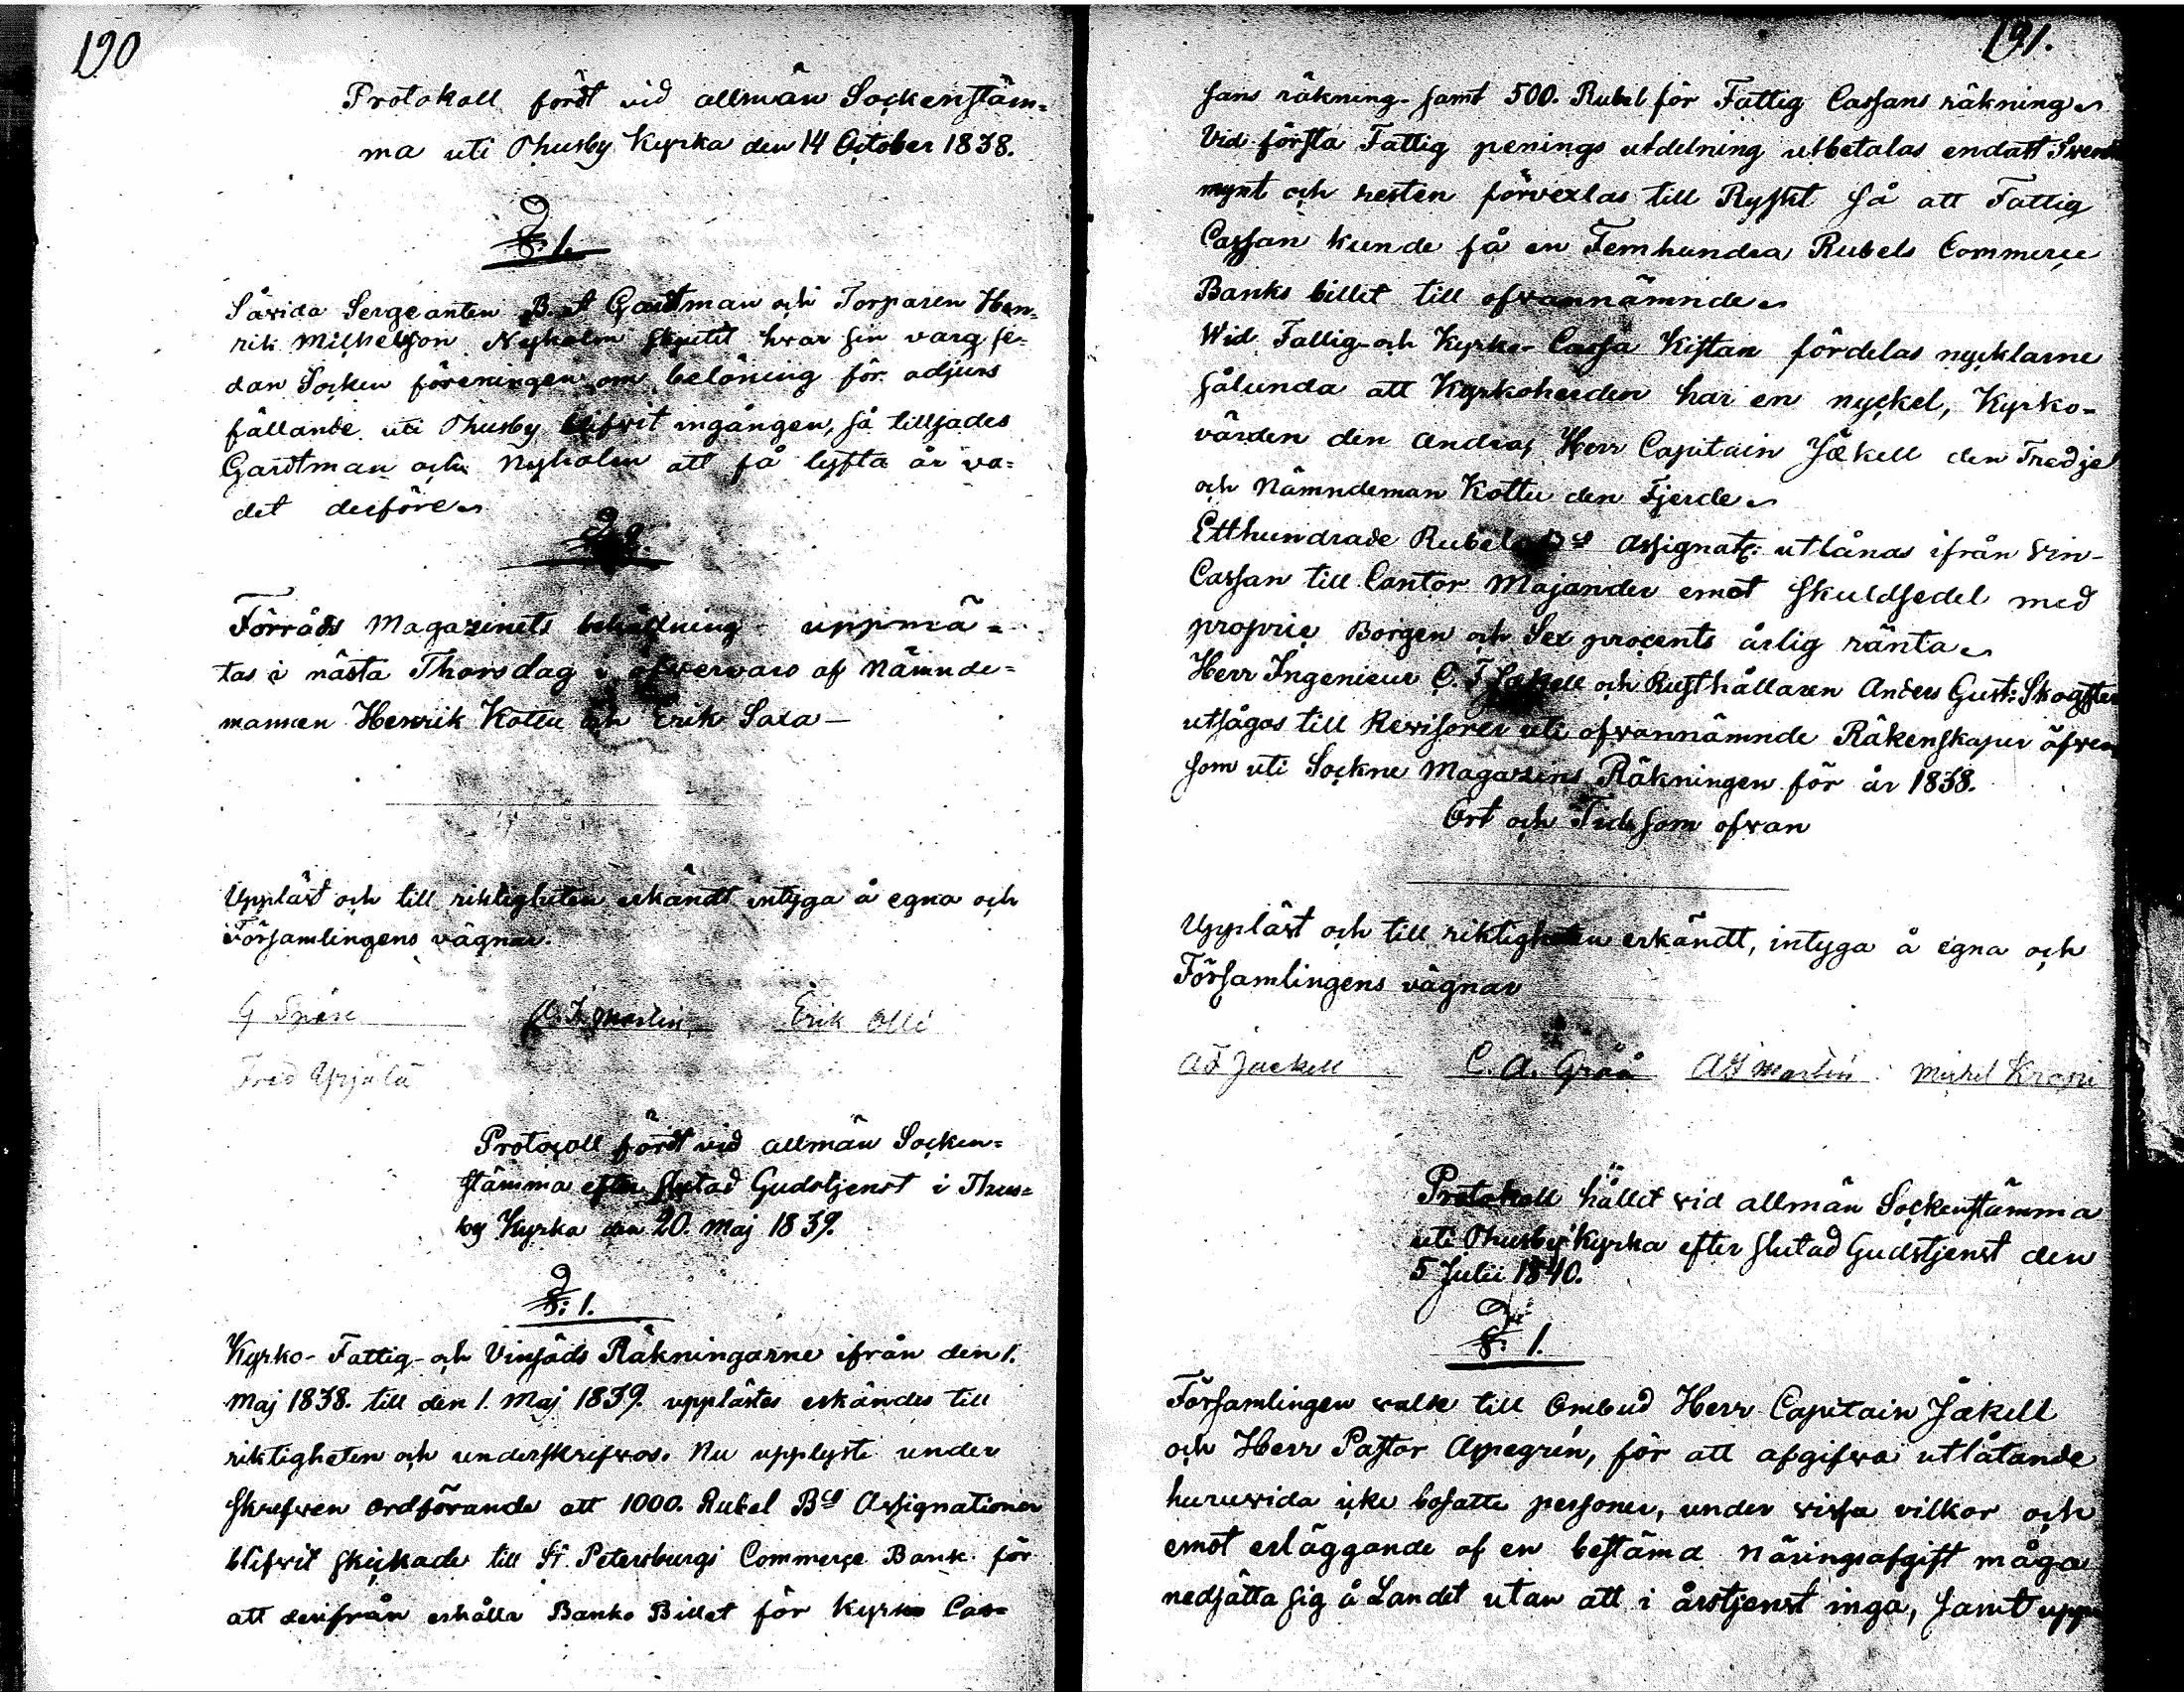 190
Protokoll fördt vid allmän Sockenstäm=
ma uti Thusby Kyrka den 14 October 1838.
§. 1.
Såvida Sergeanten Gardtman och Torparen Hen=
rik Michelsson Nyholm skjutit hvar sin varg se=
dan Socken föreningen om belöning för odjurs
fällande uti Thusby blifvit ingången, så tillsades
Gardtman och Nyholm att få lyfta är va=
det derföre
§. 2.
Förråds Magazinets behållning uppmä=
tas i nästa Thorsdag i öfvervaro af Nämnde=
mannen Henrik Kottu och Erik Saxa —
Uppläst och till riktigheten erkändt intyga å egna och
Församlingens vägnar.
G C. F. Martin Erik Olli
Fred Yrjälä
Protocoll fördt vid allmän Socken=
stämma efter slutad Gudstjenst i Thus=
by Kyrka den 20. Maj 1839.
§: 1.
Kyrko- Fattig- och Vinsäds Räkningarne ifrån den 1.
Maj 1838. till den 1. Maj 1839. upplästes erkändes till
riktigheten och underskrefvos. Nu upplyste under
skrefven ordförande att 1000. Rubel Bco Assignationer
blifvit skickade till St. Petersburgs Commerce Bank för
att derifrån erhålla Banko Billet för Kyrko Cas=
191.
sans räkning samt 500. Rubel för Fattig Cassans räkning
Vid första Fattig penings utdelning utbetalas endast Svenskt
mynt och resten förvexlas till Ryskt så att Fattig
Cassan kunde få en Femhundra Rubels Commerce
Banks billet till ofvannämnde
Wid Fattig- och Kyrko- Cassa Kistan fördelas nycklarne
sålunda att Kyrkoherden har en nyckel, Kyrko-
värden den andra, Herr Capitain Jäkell den Tredje
och Nämndeman Kottu den Fjerde
Etthundrade Rubel Bco Assignat: utlånas ifrån Vin-
Cassan till Cantor Majander emot skuldsedel med
proprie Borgen och Sex procents årlig ränta
Herr Ingenieur C. F Jäkell och Rusthållaren Anders Gust: Skogster
utsågos till Revisorer uti ofvannämnde Räkenskaper äfven
som uti Sockne Magazins Räkningen för år 1838.
Ort och Tid som ofvan
Uppläst och till riktigheten erkändt, intyga å egna och
Församlingens vägnar
A F Jackell C. A. Gråå A F Martin Michel Krapi
Protokoll hållet vid allmän Sockenstämma
uti Thusby Kyrka efter slutad Gudstjenst den
5 Julii 1840.
§: 1.
Församlingen valde till Ombud Herr Capitain Jäkell
och Herr Pastor Appegrén, för att afgifva utlåtande
huruvida icke bosatte personer, under vissa vilkor och
emot erläggande af en bestämd Näringsafgift måga
nedsätta sig å Landet utan att i årstjenst ingå, samt upp